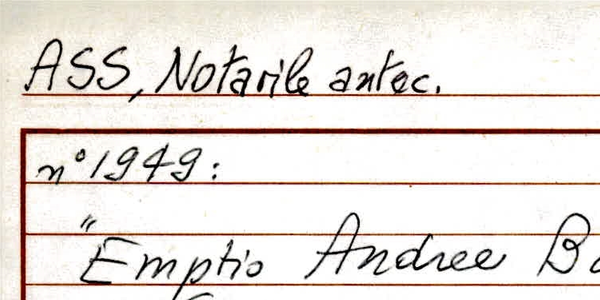 ASS, Notarile antec.
n° 1949:
"Emptio Andree